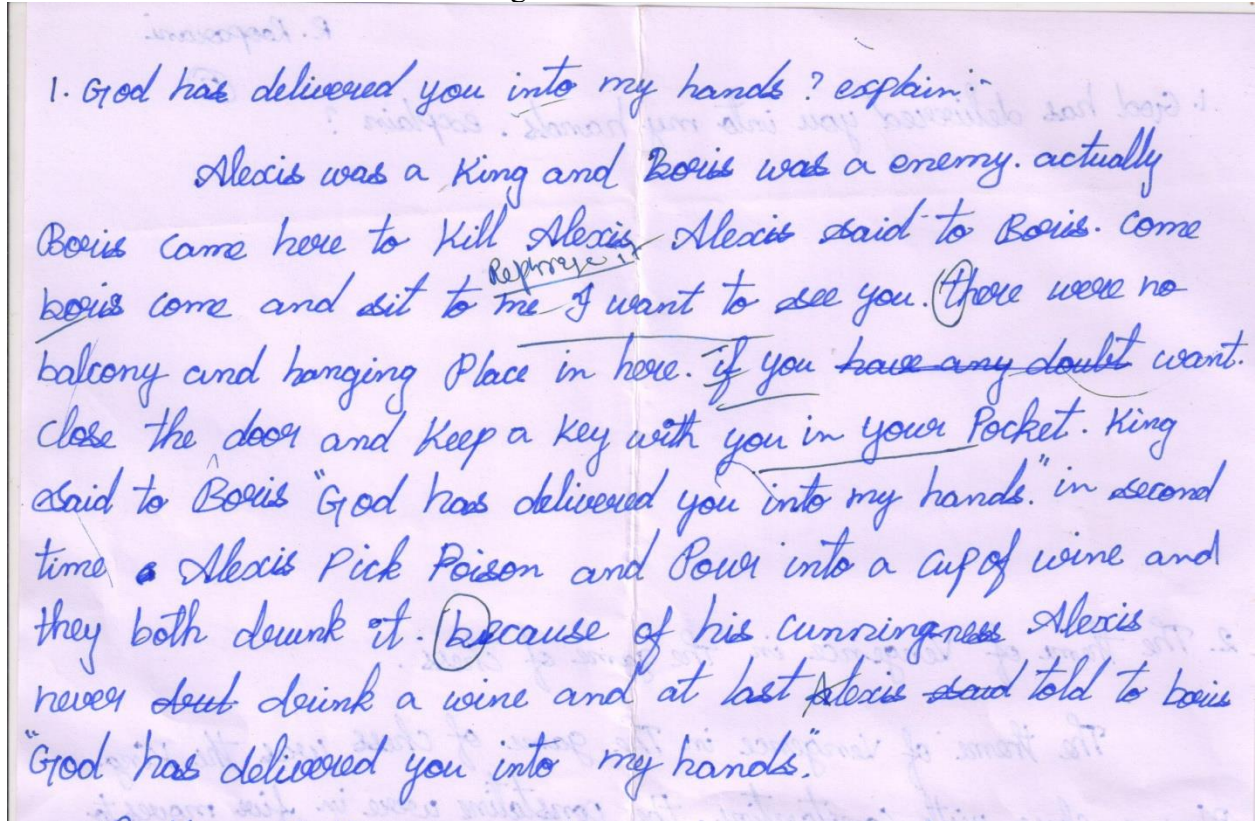 1. God has delivered you into my hands? explain:-
Alexis was a King and Boris was a enemy. actually
Boris came here to kill Alexis. Alexis said to Boris. come
Rephrase it
boris come and sit to me I want to see you. there were no
balcony and hanging Place in here. if you have any doubt want.
close the door and keep a key with you in your Pocket. King
said to Boris "God has delivered you into my hands." in second
time Alexis Pick Poison and Pour into a cup of wine and
they both drunk it. because of his cunningness Alexis
never drink a wine and at last Alexis said told to boris
"God has delivered you into my hands."